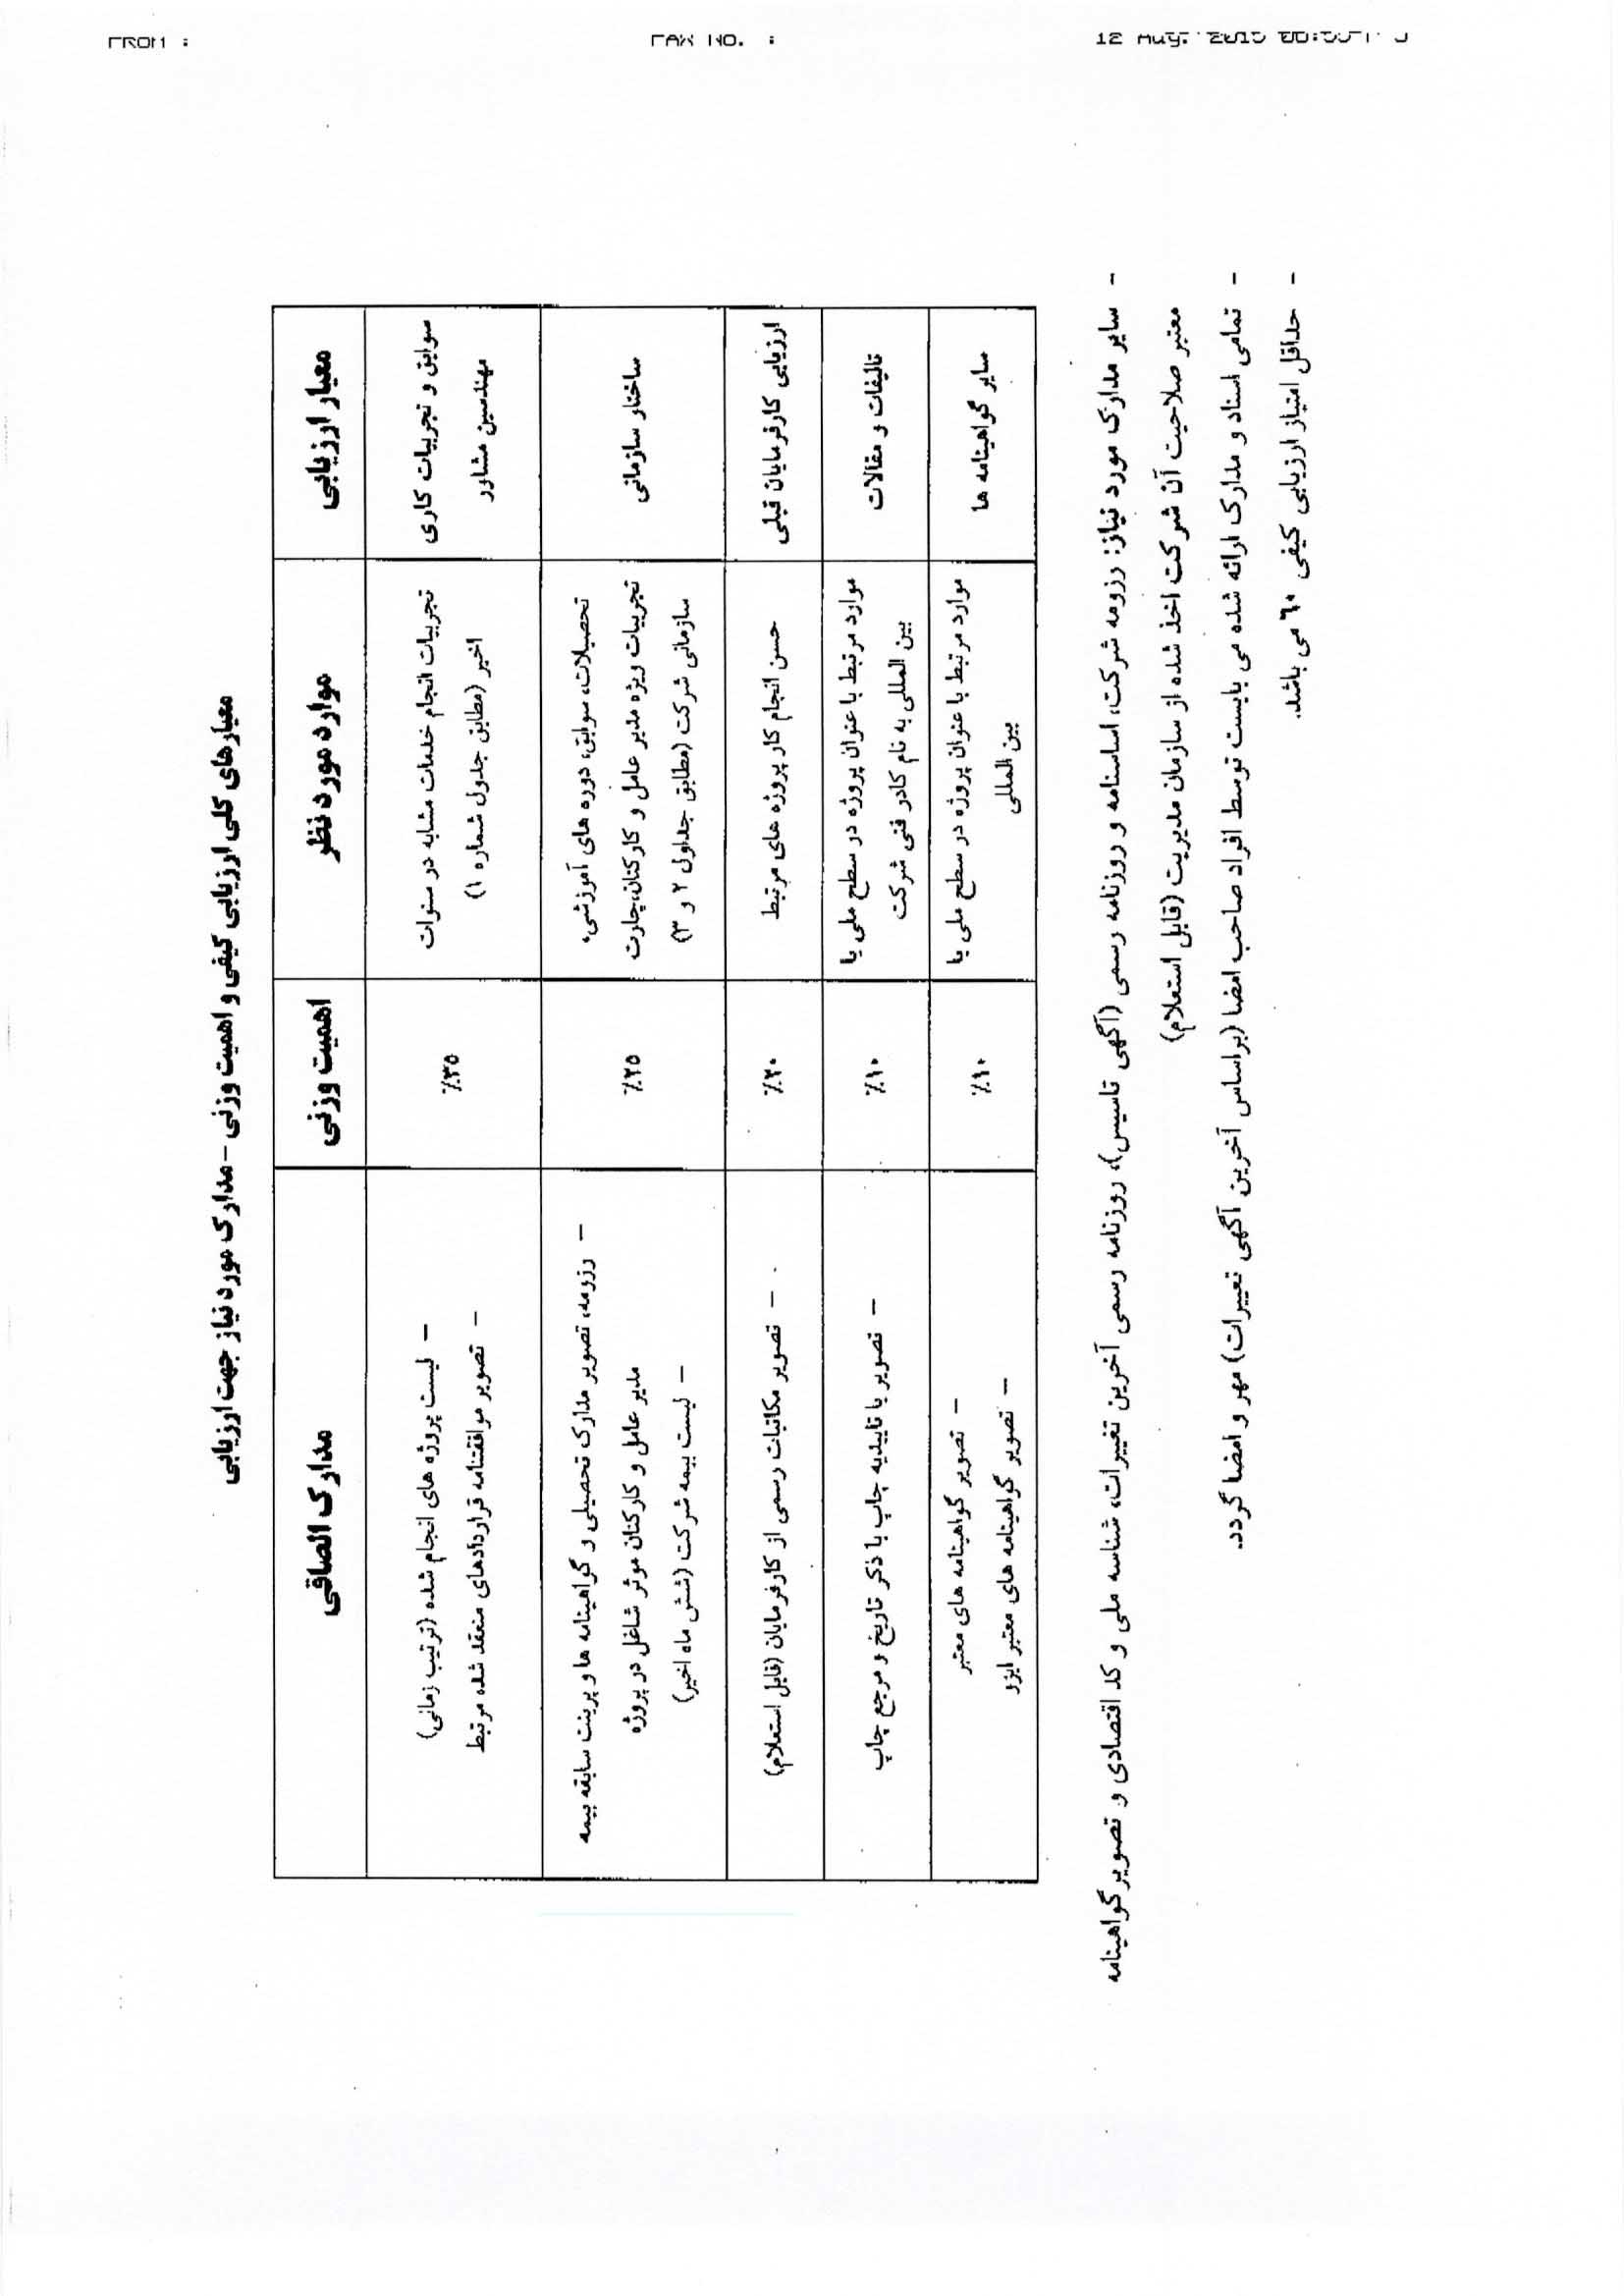 FROM :
FAX NO. :
12 Aug. 2015
معیارهای کلی ارزیابی کیفی و اهمیت وزنی – مدارک مورد نیاز جهت ارزیابی
معیار ارزیابی
موارد مورد نظر
اهمیت وزنی
مدارک الصاقی
سوابق و تجربیات کاری
مهندسین مشاور
تجربیات انجام خدمات مشابه در سنوات
اخیر (مطابق جدول شماره ۱)
٪۳۵
– لیست پروژه های انجام شده (ترتیب زمانی)
– تصویر موافقتنامه قراردادهای منعقد شده مرتبط
ساختار سازمانی
تحصیلات، سوابق، دوره های آموزشی،
تجربیات ویژه مدیر عامل و کارکنان،چارت
سازمانی شرکت (مطابق جداول ۲ و ۳)
٪۲۵
– رزومه، تصویر مدارک تحصیلی و گواهینامه ها و پرینت سابقه بیمه
مدیر عامل و کارکنان موثر شاغل در پروژه
– لیست بیمه شرکت (شش ماه اخیر)
ارزیابی کارفرمایان قبلی
حسن انجام کار پروژه های مرتبط
٪۲۰
– تصویر مکاتبات رسمی از کارفرمایان (قابل استعلام)
تالیفات و مقالات
موارد مرتبط با عنوان پروژه در سطح ملی یا
بین المللی به نام کادر فنی شرکت
٪۱۰
– تصویر یا تاییدیه چاپ با ذکر تاریخ و مرجع چاپ
سایر گواهینامه ها
موارد مرتبط با عنوان پروژه در سطح ملی یا
بین المللی
٪۱۰
– تصویر گواهینامه های معتبر
– تصویر گواهینامه های معتبر ایزو
- سایر مدارک مورد نیاز: رزومه شرکت، اساسنامه و روزنامه رسمی (آگهی تاسیس)، روزنامه رسمی آخرین تغییرات، شناسه ملی و کد اقتصادی و تصویر گواهینامه
معتبر صلاحیت آن شرکت اخذ شده از سازمان مدیریت (قابل استعلام)
- تمامی اسناد و مدارک ارائه شده می بایست توسط افراد صاحب امضا (براساس آخرین آگهی تغییرات) مهر و امضا گردد.
- حداقل امتیاز ارزیابی کیفی ۶۰ می باشد.